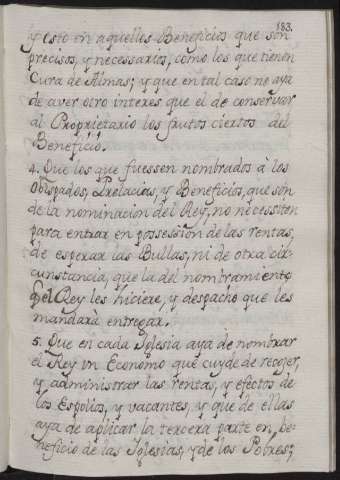 183.
y esto en aquellos Beneficios que son
precisos, y necessarios, como los que tienen
Cura de Almas; y que en tal caso no aya
de aver otro interes que el de conservar
al Proprietario los frutos ciertos del
Beneficio.
4. Que los que fuessen nombrados a los
Obispados, Prelacias, y Beneficios, que son
de la nominacion del Rey, no necessiten
para entrar en possession de las rentas,
de esperar las Bullas, ni de otra cir-
cunstancia, que la del nombramiento
qe. el Rey les hiciere, y despacho que les
mandarà entregar.
5. Que en cada Iglesia aya de nombrar
el Rey vn Economo que cuyde de recoger,
y administrar las rentas, y efectos de
los Espolios, y vacantes, y que de ellas
aya de aplicar la tercera parte en be-
neficio de las Iglesias, y de los Pobres;